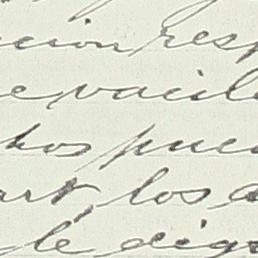 cion resp
e vacile
hos pue
art los a
le dig